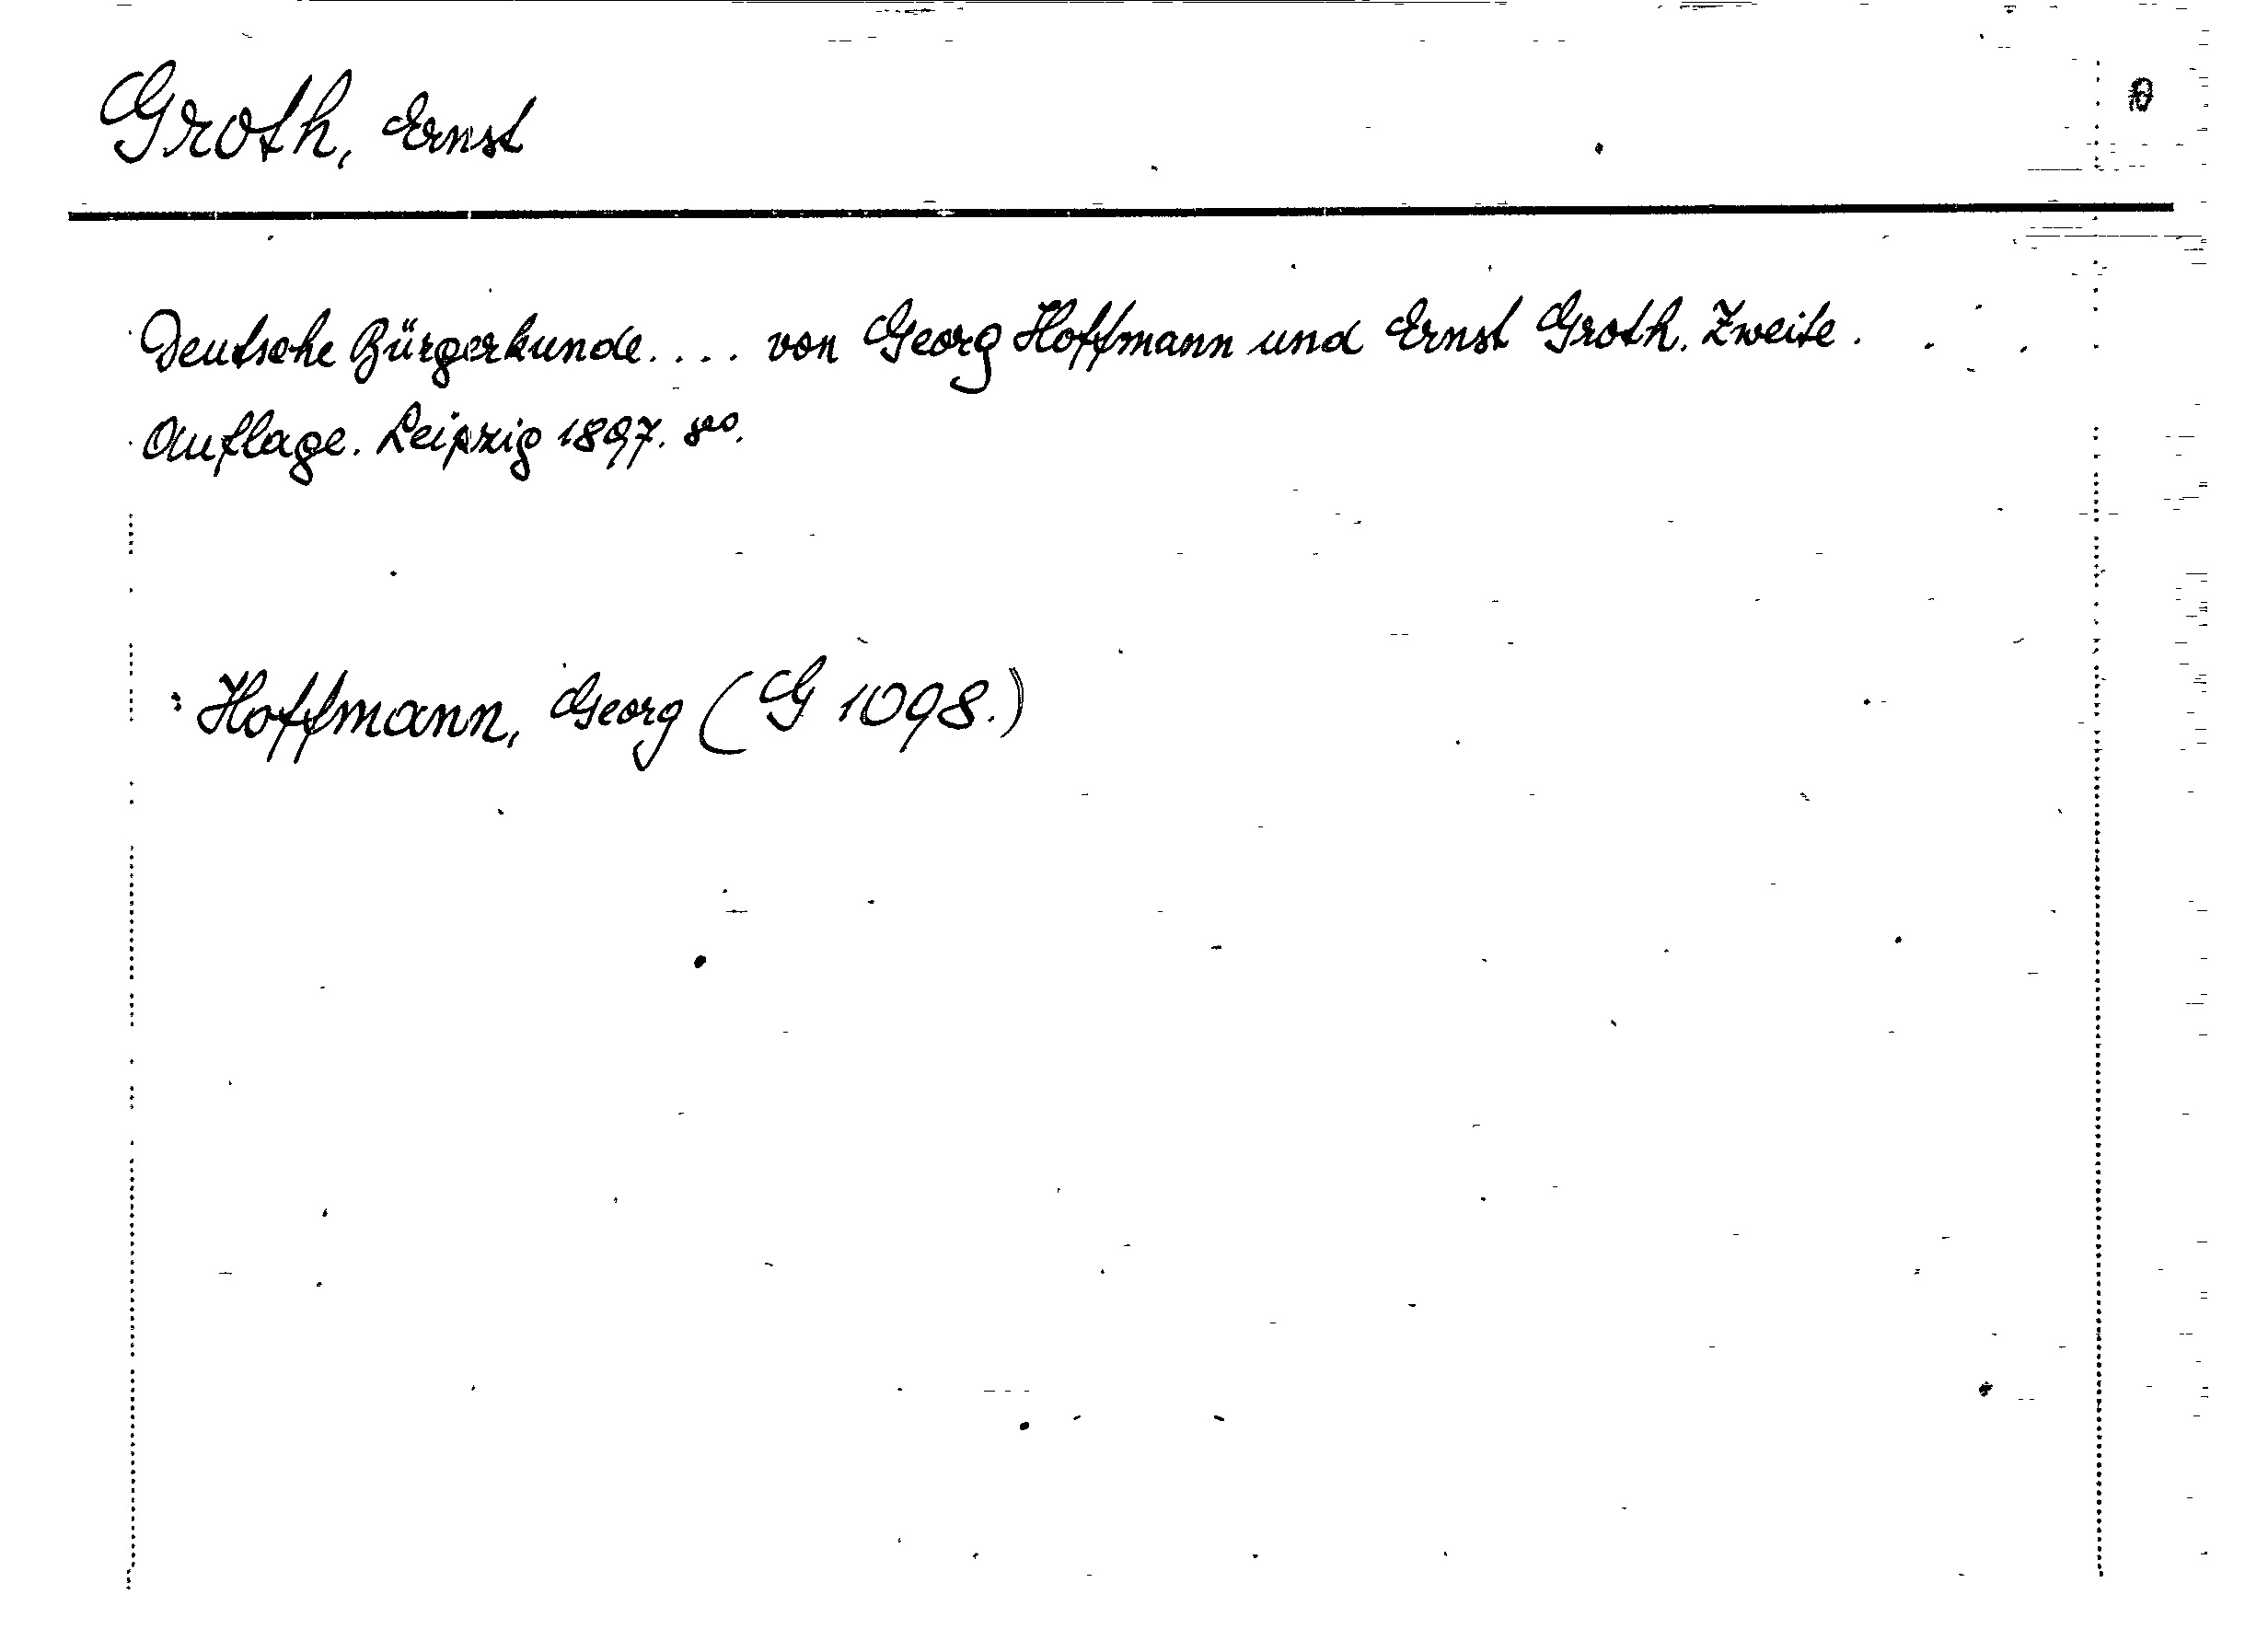 Groth, Ernst
Deutsche Bürgerkunde.... von Georg Hoffmann und Ernst Groth. Zweite
Auflage. Leipzig 1897. 8vo.
Hoffmann, Georg (G 1098.)